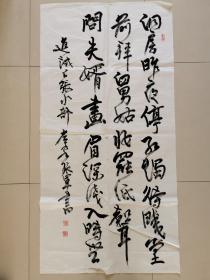 洞房昨夜停紅燭待曉堂
前拜舅姑妝罷低聲
問夫婿畫眉深淺入時無
試上張水部